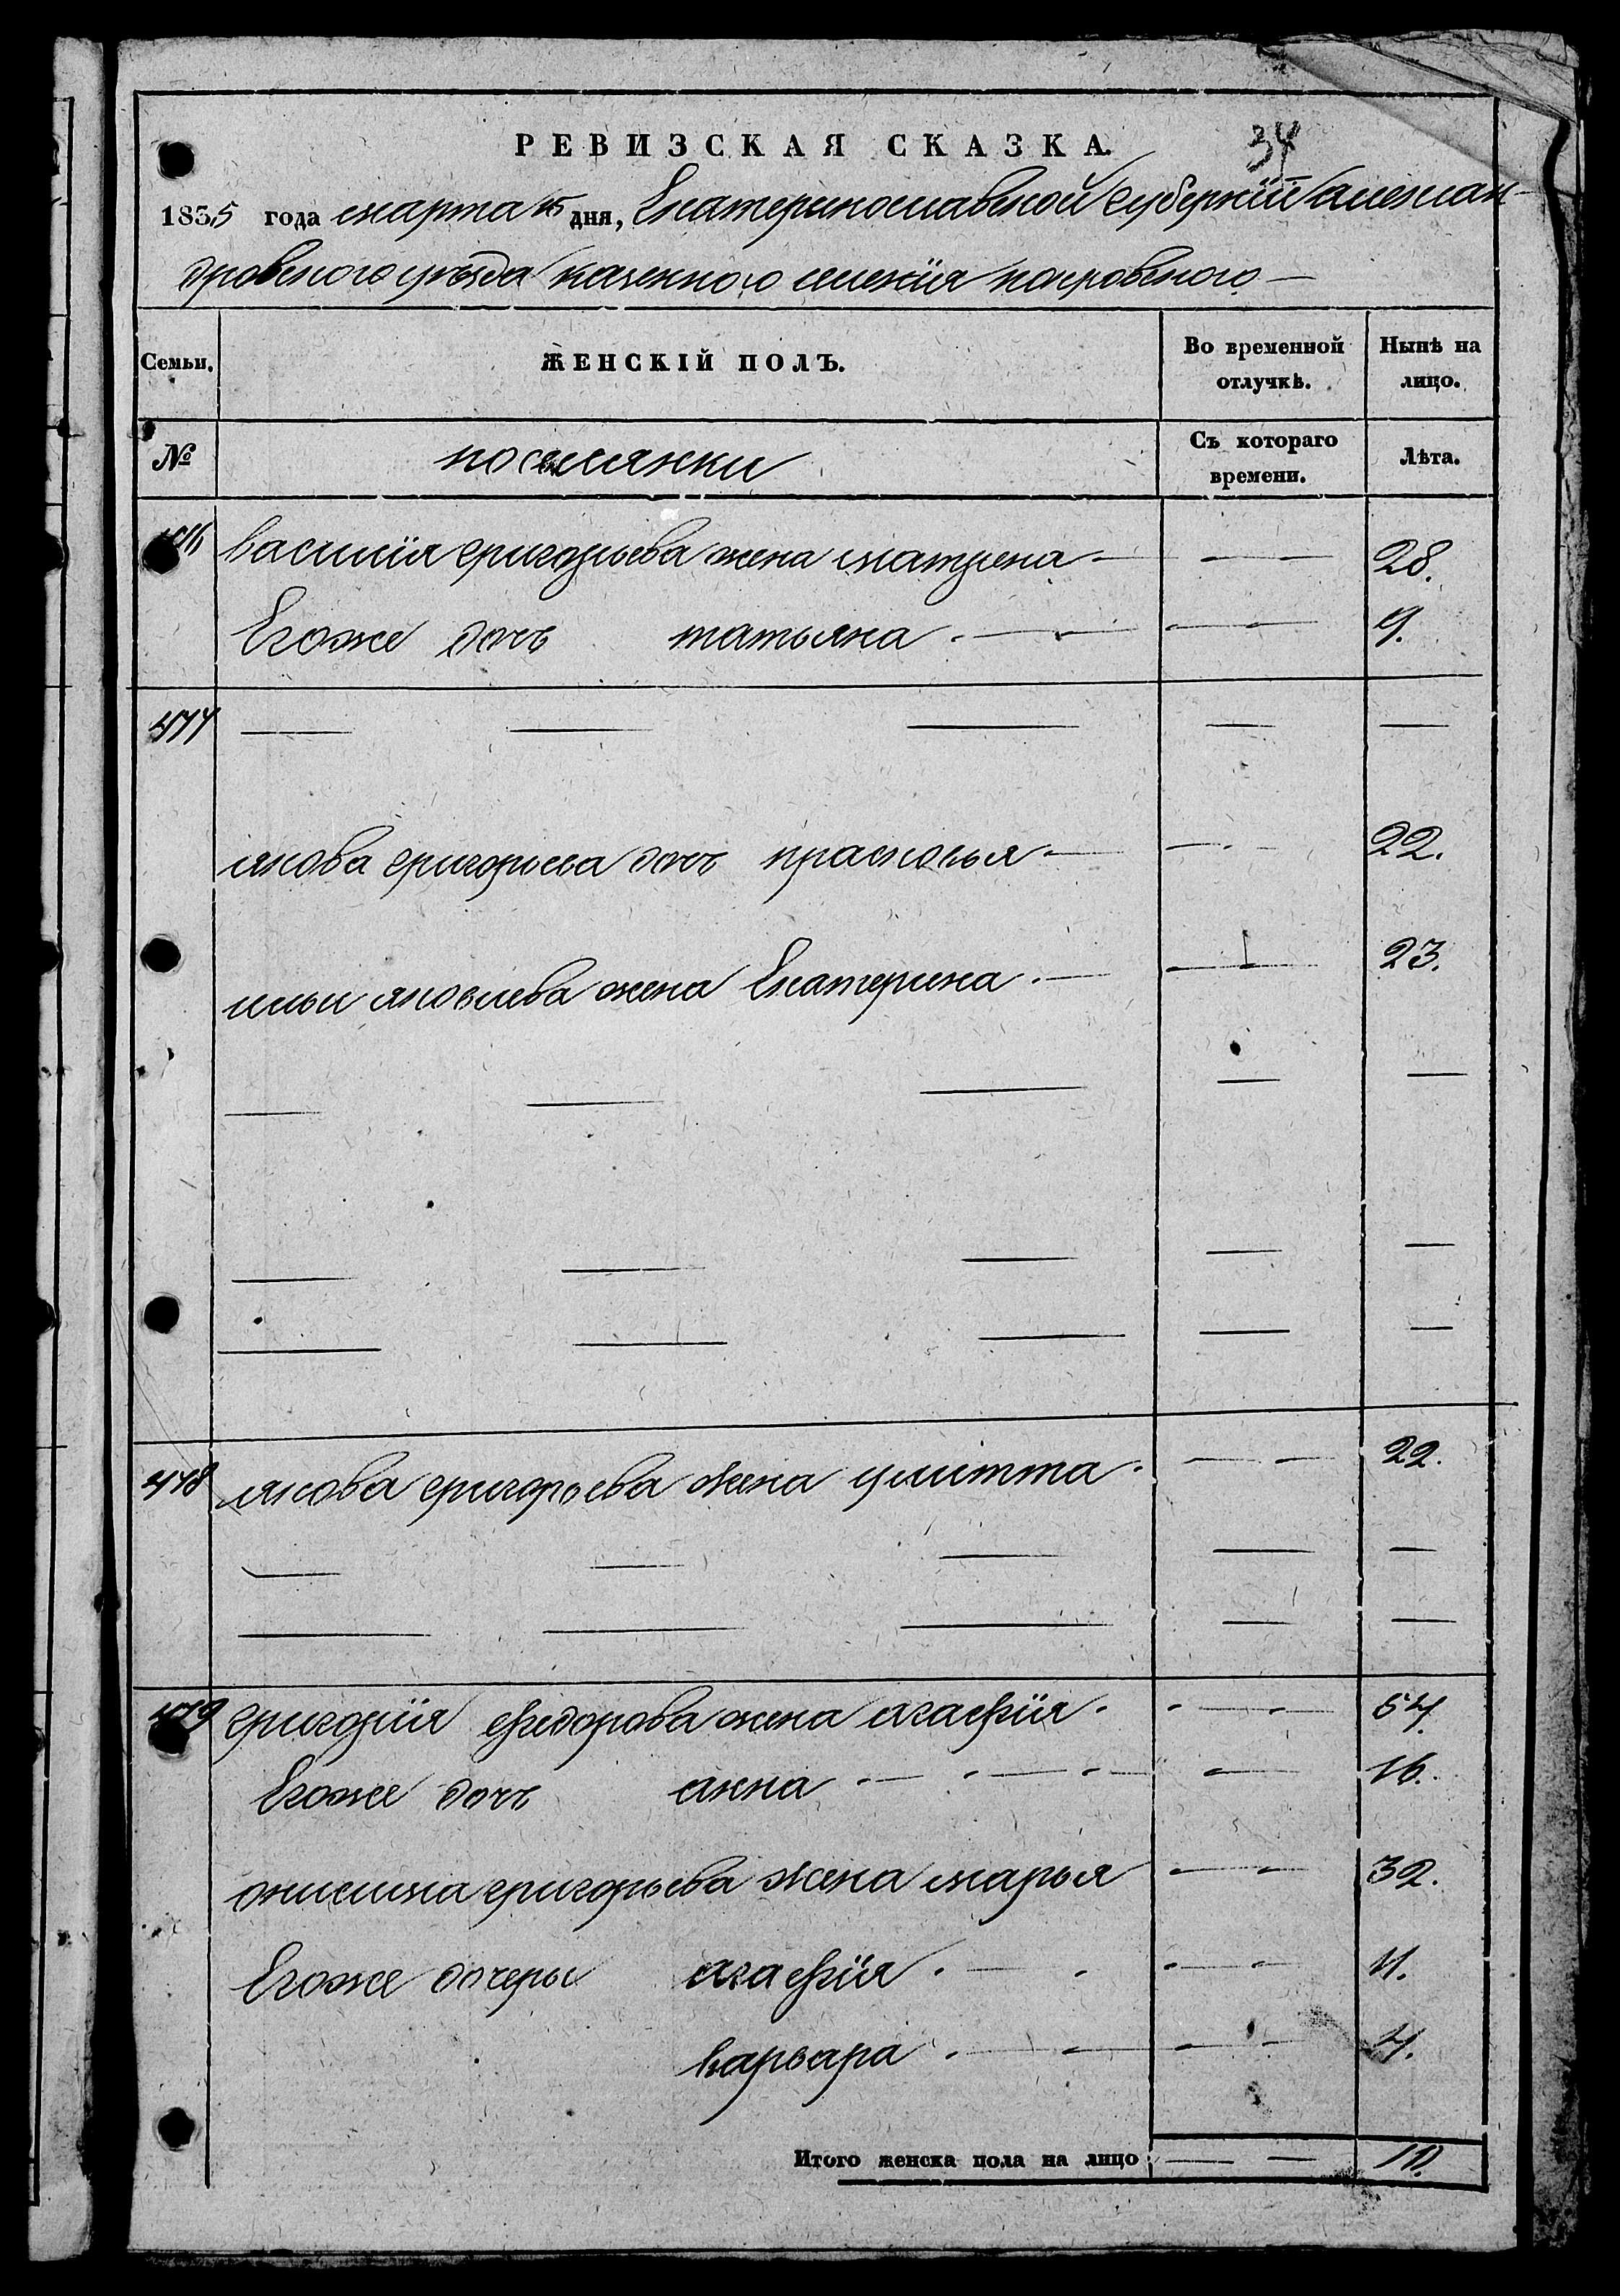 34
РЕВИЗСКАЯ СКАЗКА.
1835 года марта 15 дня, Екатеринославской Губернїи алексан-
дровского уѣзда казенного имѣнїя покровского
Семьи. ЖЕНСКІЙ ПОЛЪ. Во временной отлучкѣ. Нынѣ на лицо.
№ поселянки Съ котораго времени. Лѣта.
василїя григорьева жена матрена 28.
Егоже дочь татьяна 9.
477
якова григорьева дочь прасковья 22.
ильи яковлева жена Екатерина 23.
478 якова григорьева жена улитта 22.
479 григорїя федорова жена агафїя 54.
Егоже дочь анна 16.
онисима григорьева жена марья 32.
Егоже дочеры агафїя 11.
варвара 4.
Итого женска пола на лицо 10.